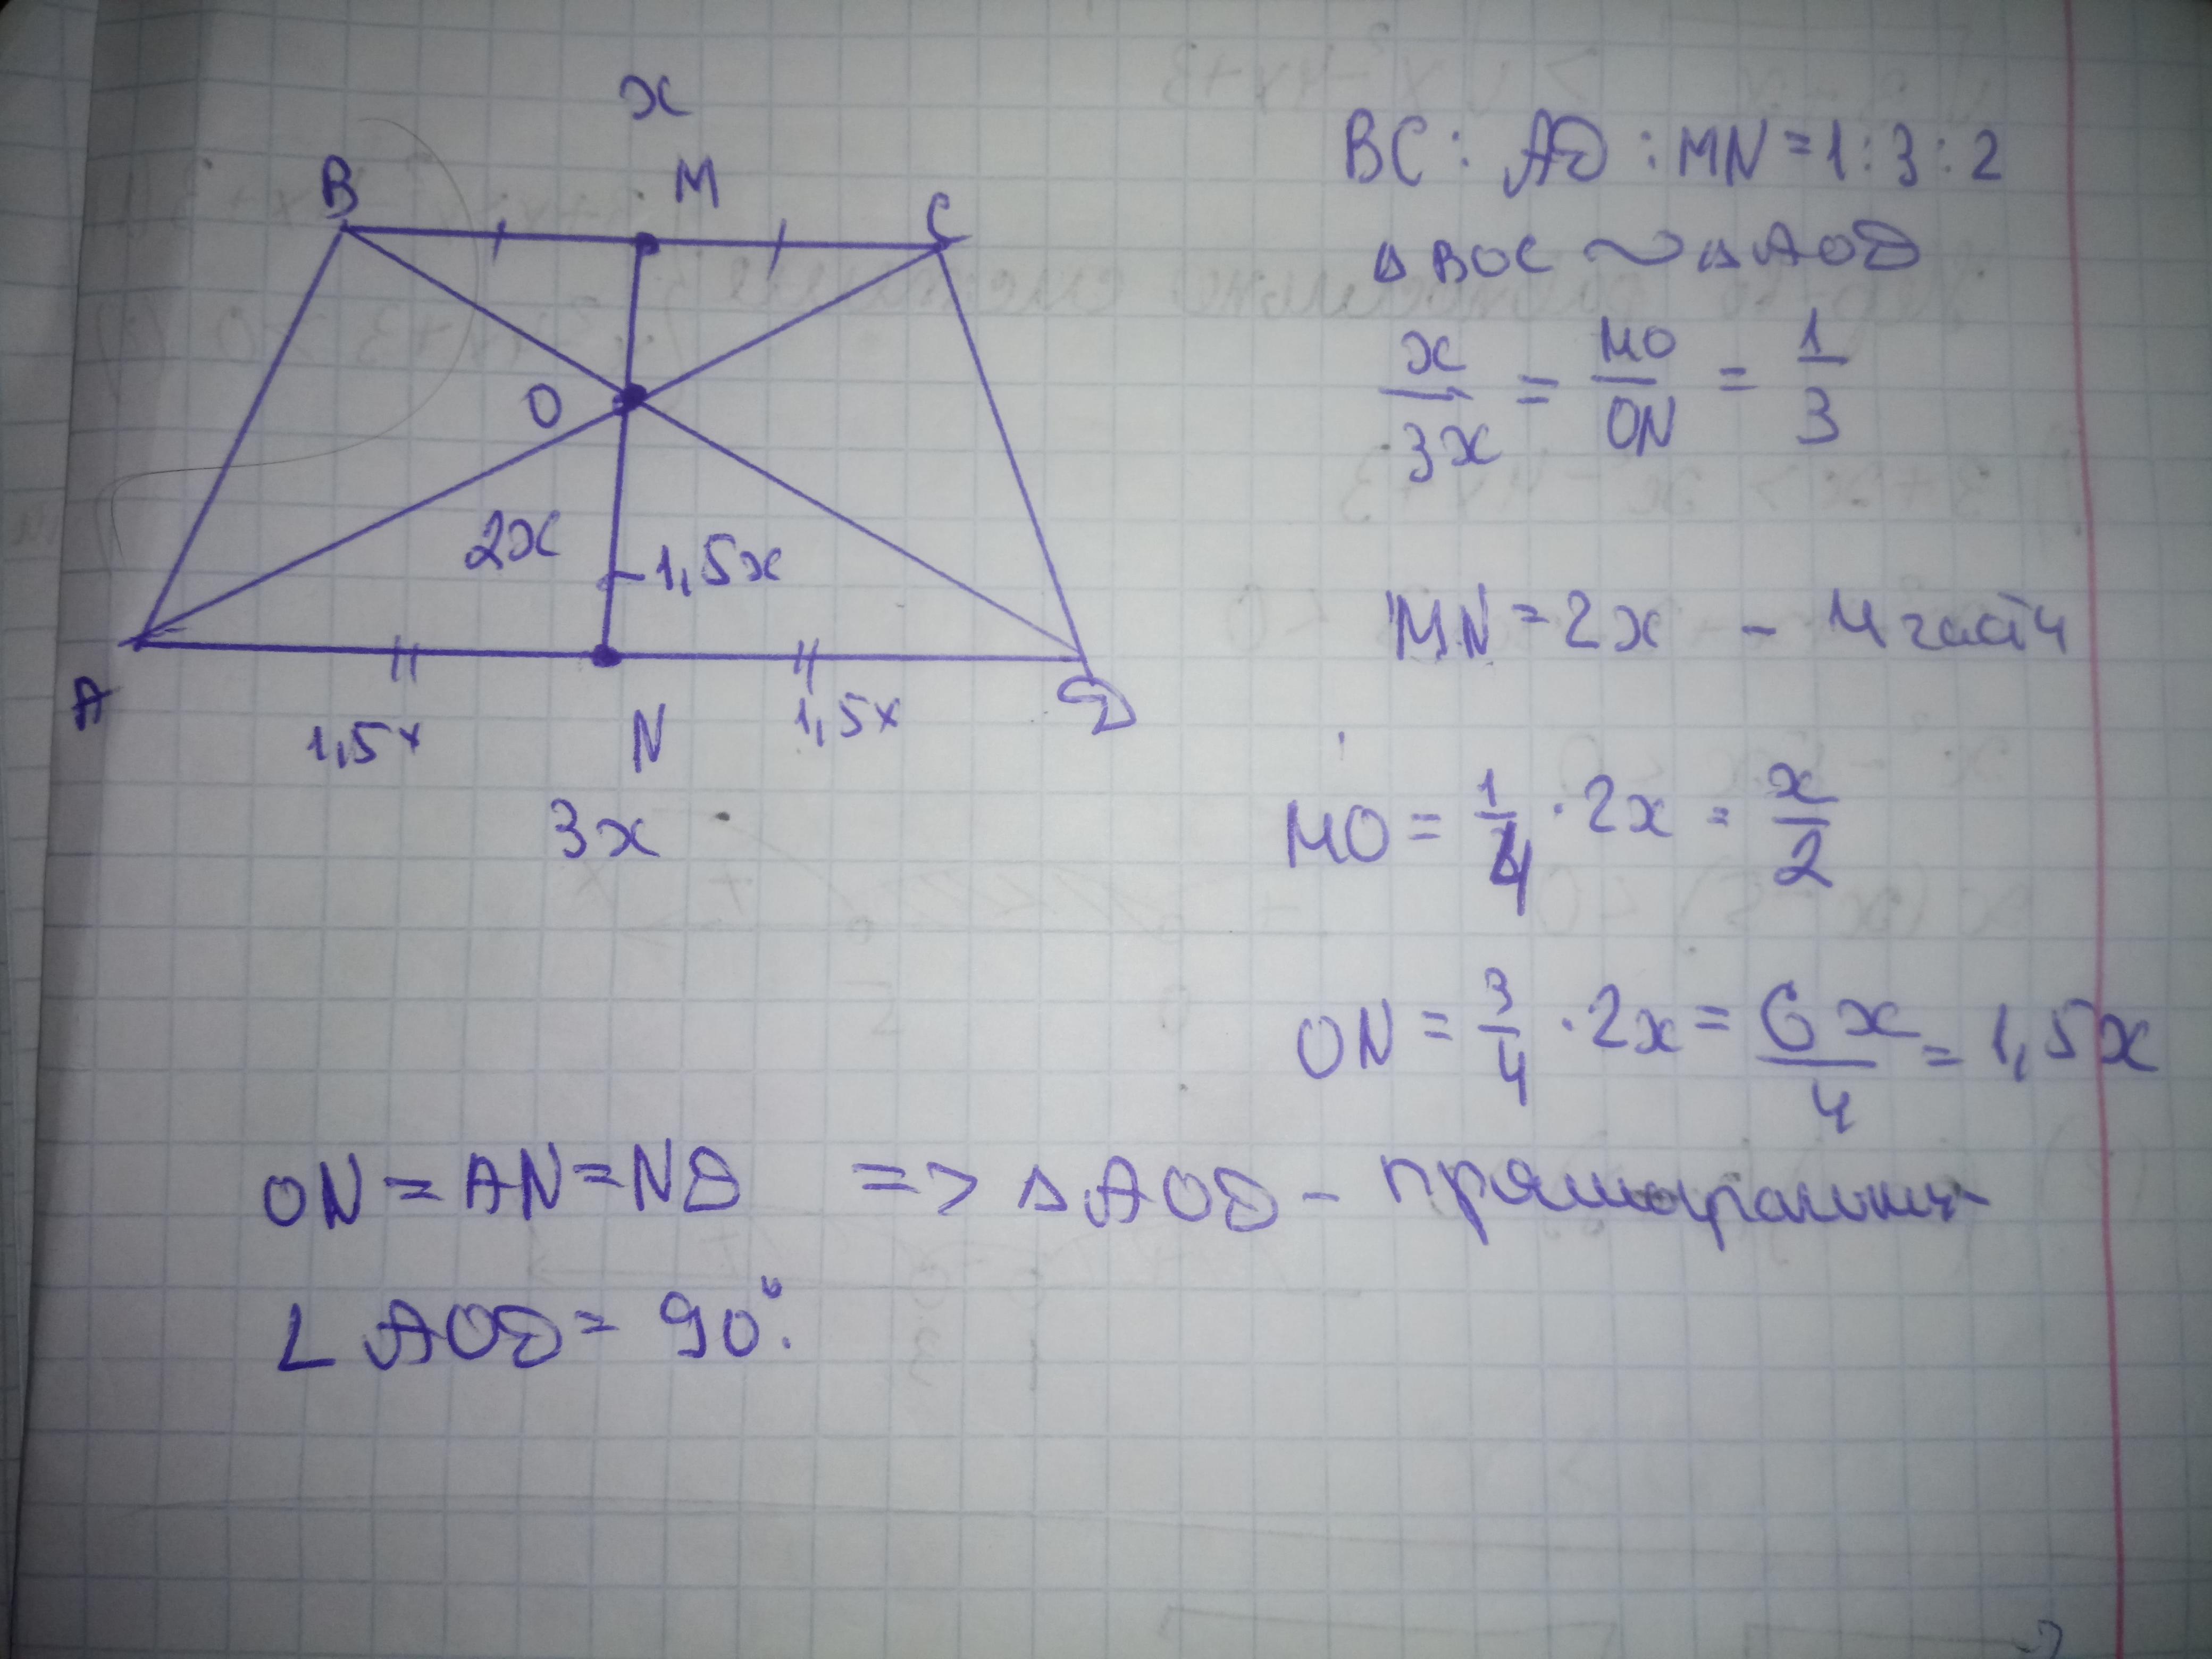 x
B M C
O
2x 1,5x
A 1,5x N 1,5x D
3x
BC : AD : MN = 1 : 3 : 2
△BOC ∼ △AOD
x/3x = MO/ON = 1/3
MN = 2x - 4 части
MO = 1/4 · 2x = x/2
ON = 3/4 · 2x = 6x/4 = 1,5x
ON = AN = ND => △AOD -
∠AOD = 90°.